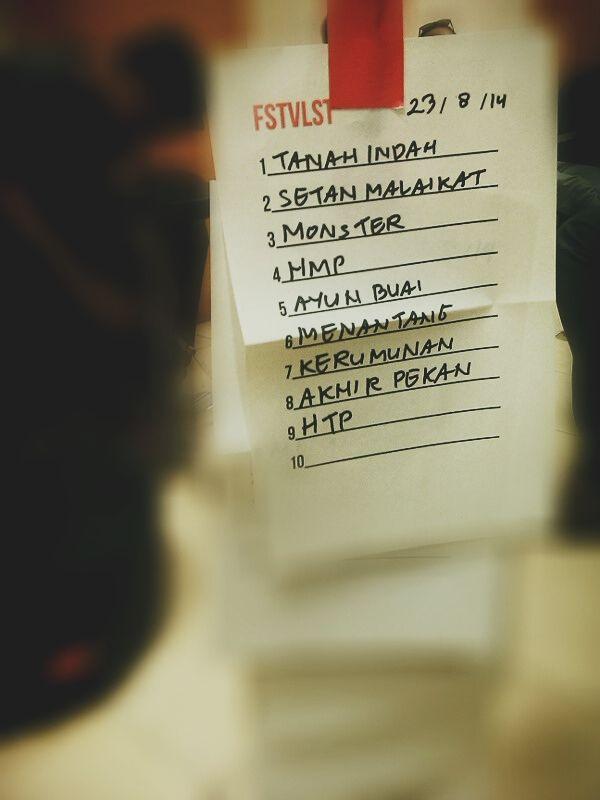 FSTVLST 23/8/14
1 TANAH INDAH
2 SETAN MALAIKAT
3 MONSTER
4 HMP
5 AYUN BUAI
6 MENANTANG
7 KERUMUNAN
8 AKHIR PEKAN
9 HTP
10